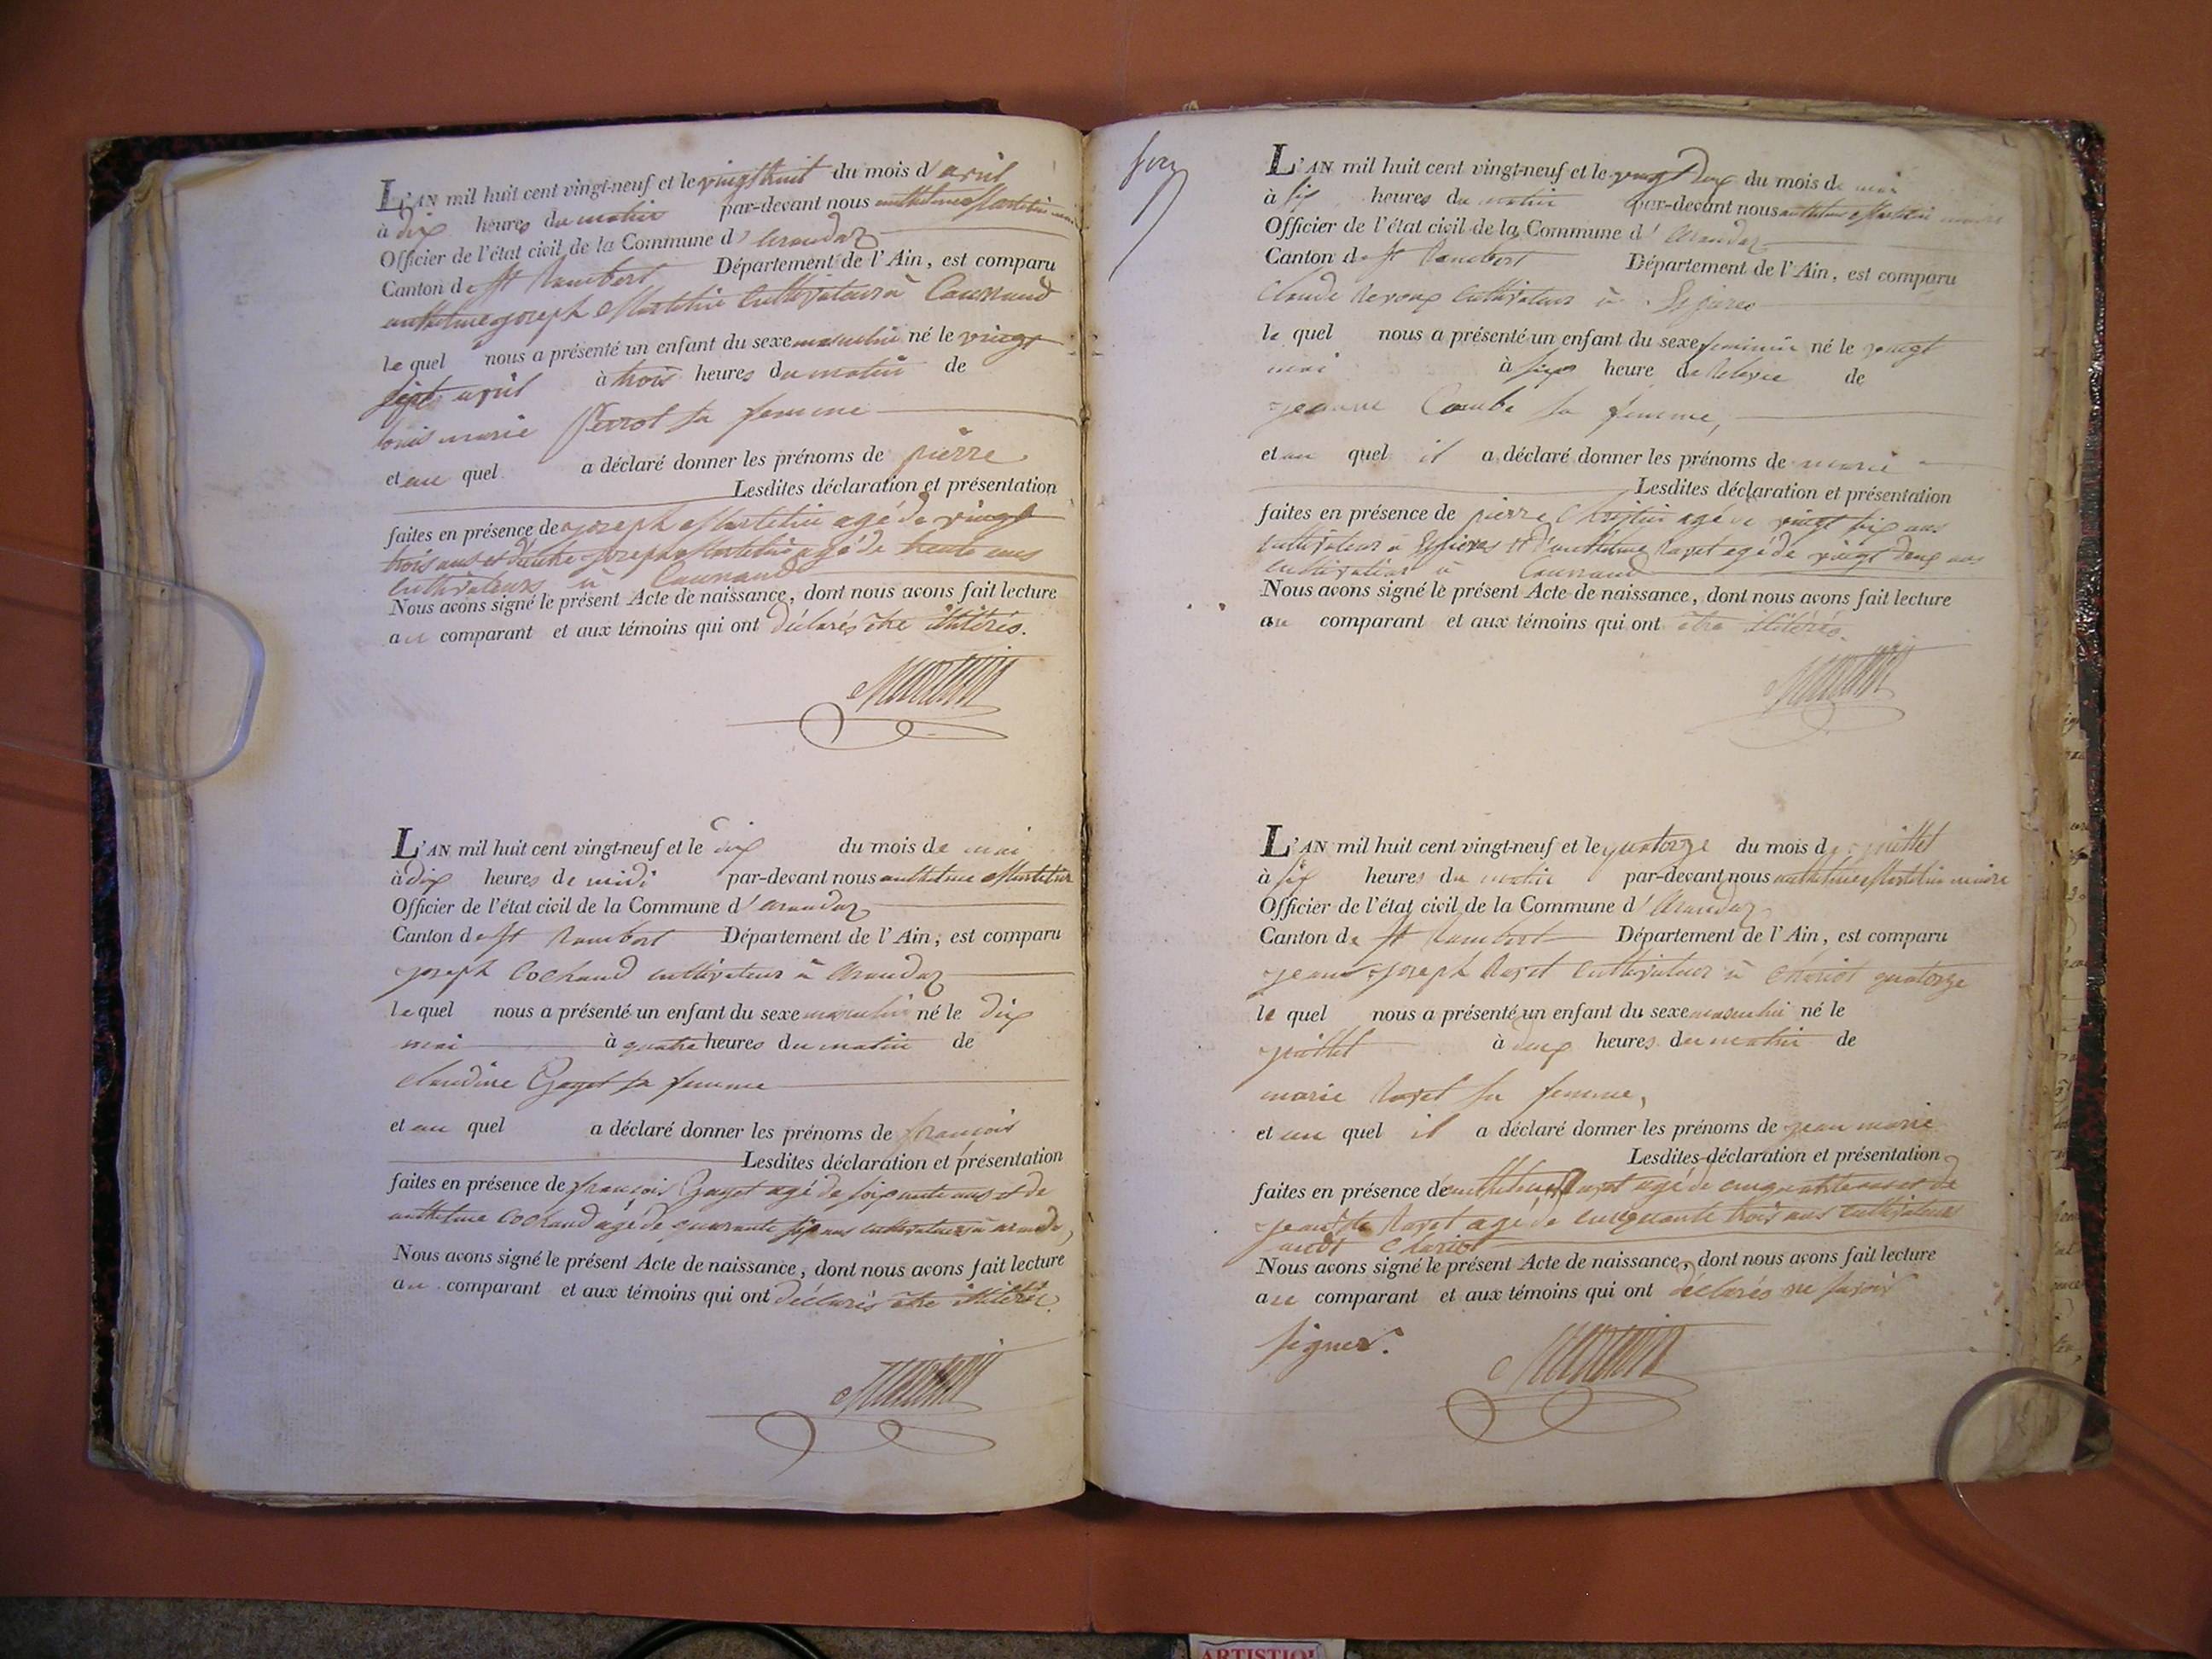 L'AN mil huit cent vingt-neuf et le vingt huit du mois d'avril
à dix heures du matin par-devant nous anthelme Martelin
Officier de l'état civil de la Commune d'arandaz
Canton de St Rambert Département de l'Ain, est comparu
anthelme joseph Martelin cultivateur à
le quel nous a présenté un enfant du sexe masculin né le vingt
sept avril à trois heures du matin de
louis marie Perrot sa femme
et au quel a déclaré donner les prénoms de pierre
Lesdites déclaration et présentation
faites en présence de joseph Martelin agé de vingt
trois ans et d'autre joseph Martelin agé de trente ans
cultivateurs à
Nous avons signé le présent Acte de naissance, dont nous avons fait lecture
au comparant et aux témoins qui ont déclarés être illitérés.
Martelin
L'AN mil huit cent vingt-neuf et le dix du mois de mai
à dix heures de midi par-devant nous anthelme Martelin
Officier de l'état civil de la Commune d'arandaz
Canton de St Rambert Département de l'Ain, est comparu
joseph Cochand cultivateur à arandaz
le quel nous a présenté un enfant du sexe masculin né le dix
mai à quatre heures du matin de
claudine Gayet sa femme
et au quel a déclaré donner les prénoms de françois
Lesdites déclaration et présentation
faites en présence de françois Gayet agé de soixante ans et de
anthelme Cochand agé de quarante six ans cultivateurs à
Nous avons signé le présent Acte de naissance, dont nous avons fait lecture
au comparant et aux témoins qui ont déclarés être
Martelin
L'AN mil huit cent vingt-neuf et le vingt deux du mois de mai
à six heures du matin par-devant nous anthelme Martelin maire
Officier de l'état civil de la Commune d'arandaz
Canton de St Rambert Département de l'Ain, est comparu
claude cultivateur à
le quel nous a présenté un enfant du sexe feminin né le vingt
mai à heure de de
jeanne Combe sa femme,
et au quel il a déclaré donner les prénoms de marie
Lesdites déclaration et présentation
faites en présence de pierre agé de vingt six ans
cultivateur à et d'anthelme Ravet agé de vingt deux ans
cultivateur à
Nous avons signé le présent Acte de naissance, dont nous avons fait lecture
au comparant et aux témoins qui ont être illitérés.
Martelin
L'AN mil huit cent vingt-neuf et le quatorze du mois de juillet
à six heures du matin par-devant nous anthelme Martelin maire
Officier de l'état civil de la Commune d'Arandaz
Canton de St Rambert Département de l'Ain, est comparu
jean joseph Ravet cultivateur à quatorze
le quel nous a présenté un enfant du sexe masculin né le
juillet à deux heures du matin de
marie Ravet sa femme,
et au quel il a déclaré donner les prénoms de jean marie
Lesdites déclaration et présentation
faites en présence de anthelme Ravet agé de ans et de
Ravet agé de cinquante trois ans cultivateurs
Nous avons signé le présent Acte de naissance, dont nous avons fait lecture
au comparant et aux témoins qui ont déclarés ne savoir
signer.
Martelin